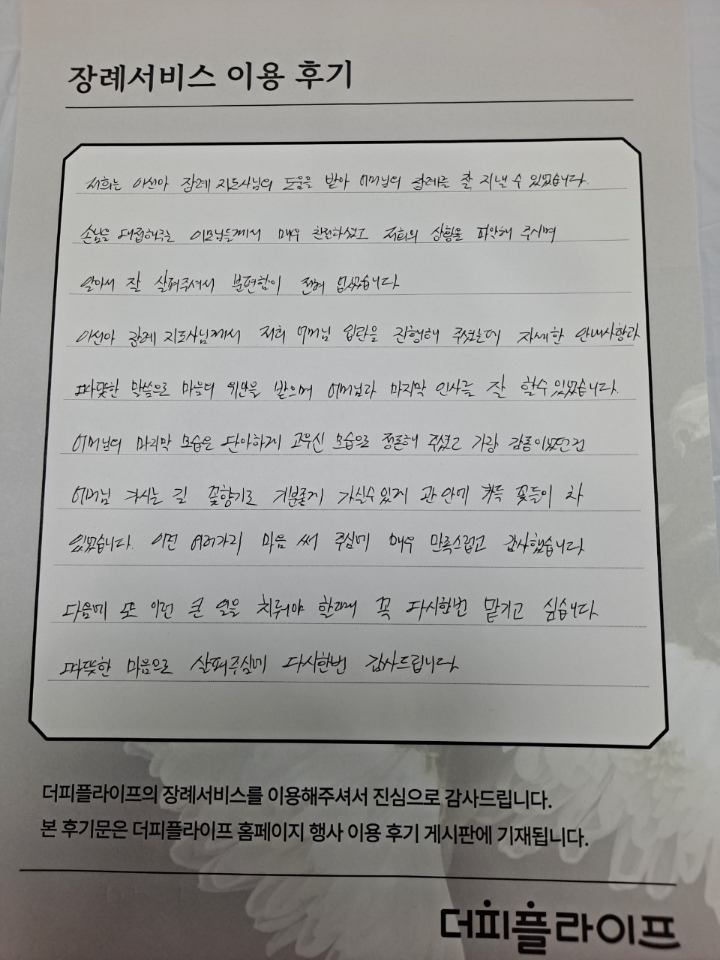 장례서비스 이용 후기
저희는 이선아 장례 지도사님의 도움을 받아 어머님의 장례를 잘 지낼 수 있었습니다.
손님을 대접해주는 이모님들께서 매우 친절하셨고 저희의 상황을 파악해 주시며
알아서 잘 살펴주셔서 불편함이 전혀 없었습니다
이선아 장례 지도사님께서 저희 어머님 입관을 진행해 주셨는데 자세한 안내사항과
따뜻한 말씀으로 마음의 위안을 받으며 어머님과 마지막 인사를 잘 할수있었습니다.
어머님의 마지막 모습은 단아하게 고우신 모습으로 정돈해 주셨고 가장 감동이었던건
어머님 가시는 길 꽃향기로 기분좋게 가실수있게 관 안에 가득 꽃들이 차
있었습니다. 이런 여러가지 마음 써 주심에 매우 만족스럽고 감사했습니다
다음에 또 이런 큰 일을 치뤄야 할때에 꼭 다시한번 맡기고 싶습니다
따뜻한 마음으로 살펴주심에 다시한번 감사드립니다
더피플라이프의 장례서비스를 이용해주셔서 진심으로 감사드립니다.
본 후기문은 더피플라이프 홈페이지 행사 이용 후기 게시판에 기재됩니다.
더피플라이프